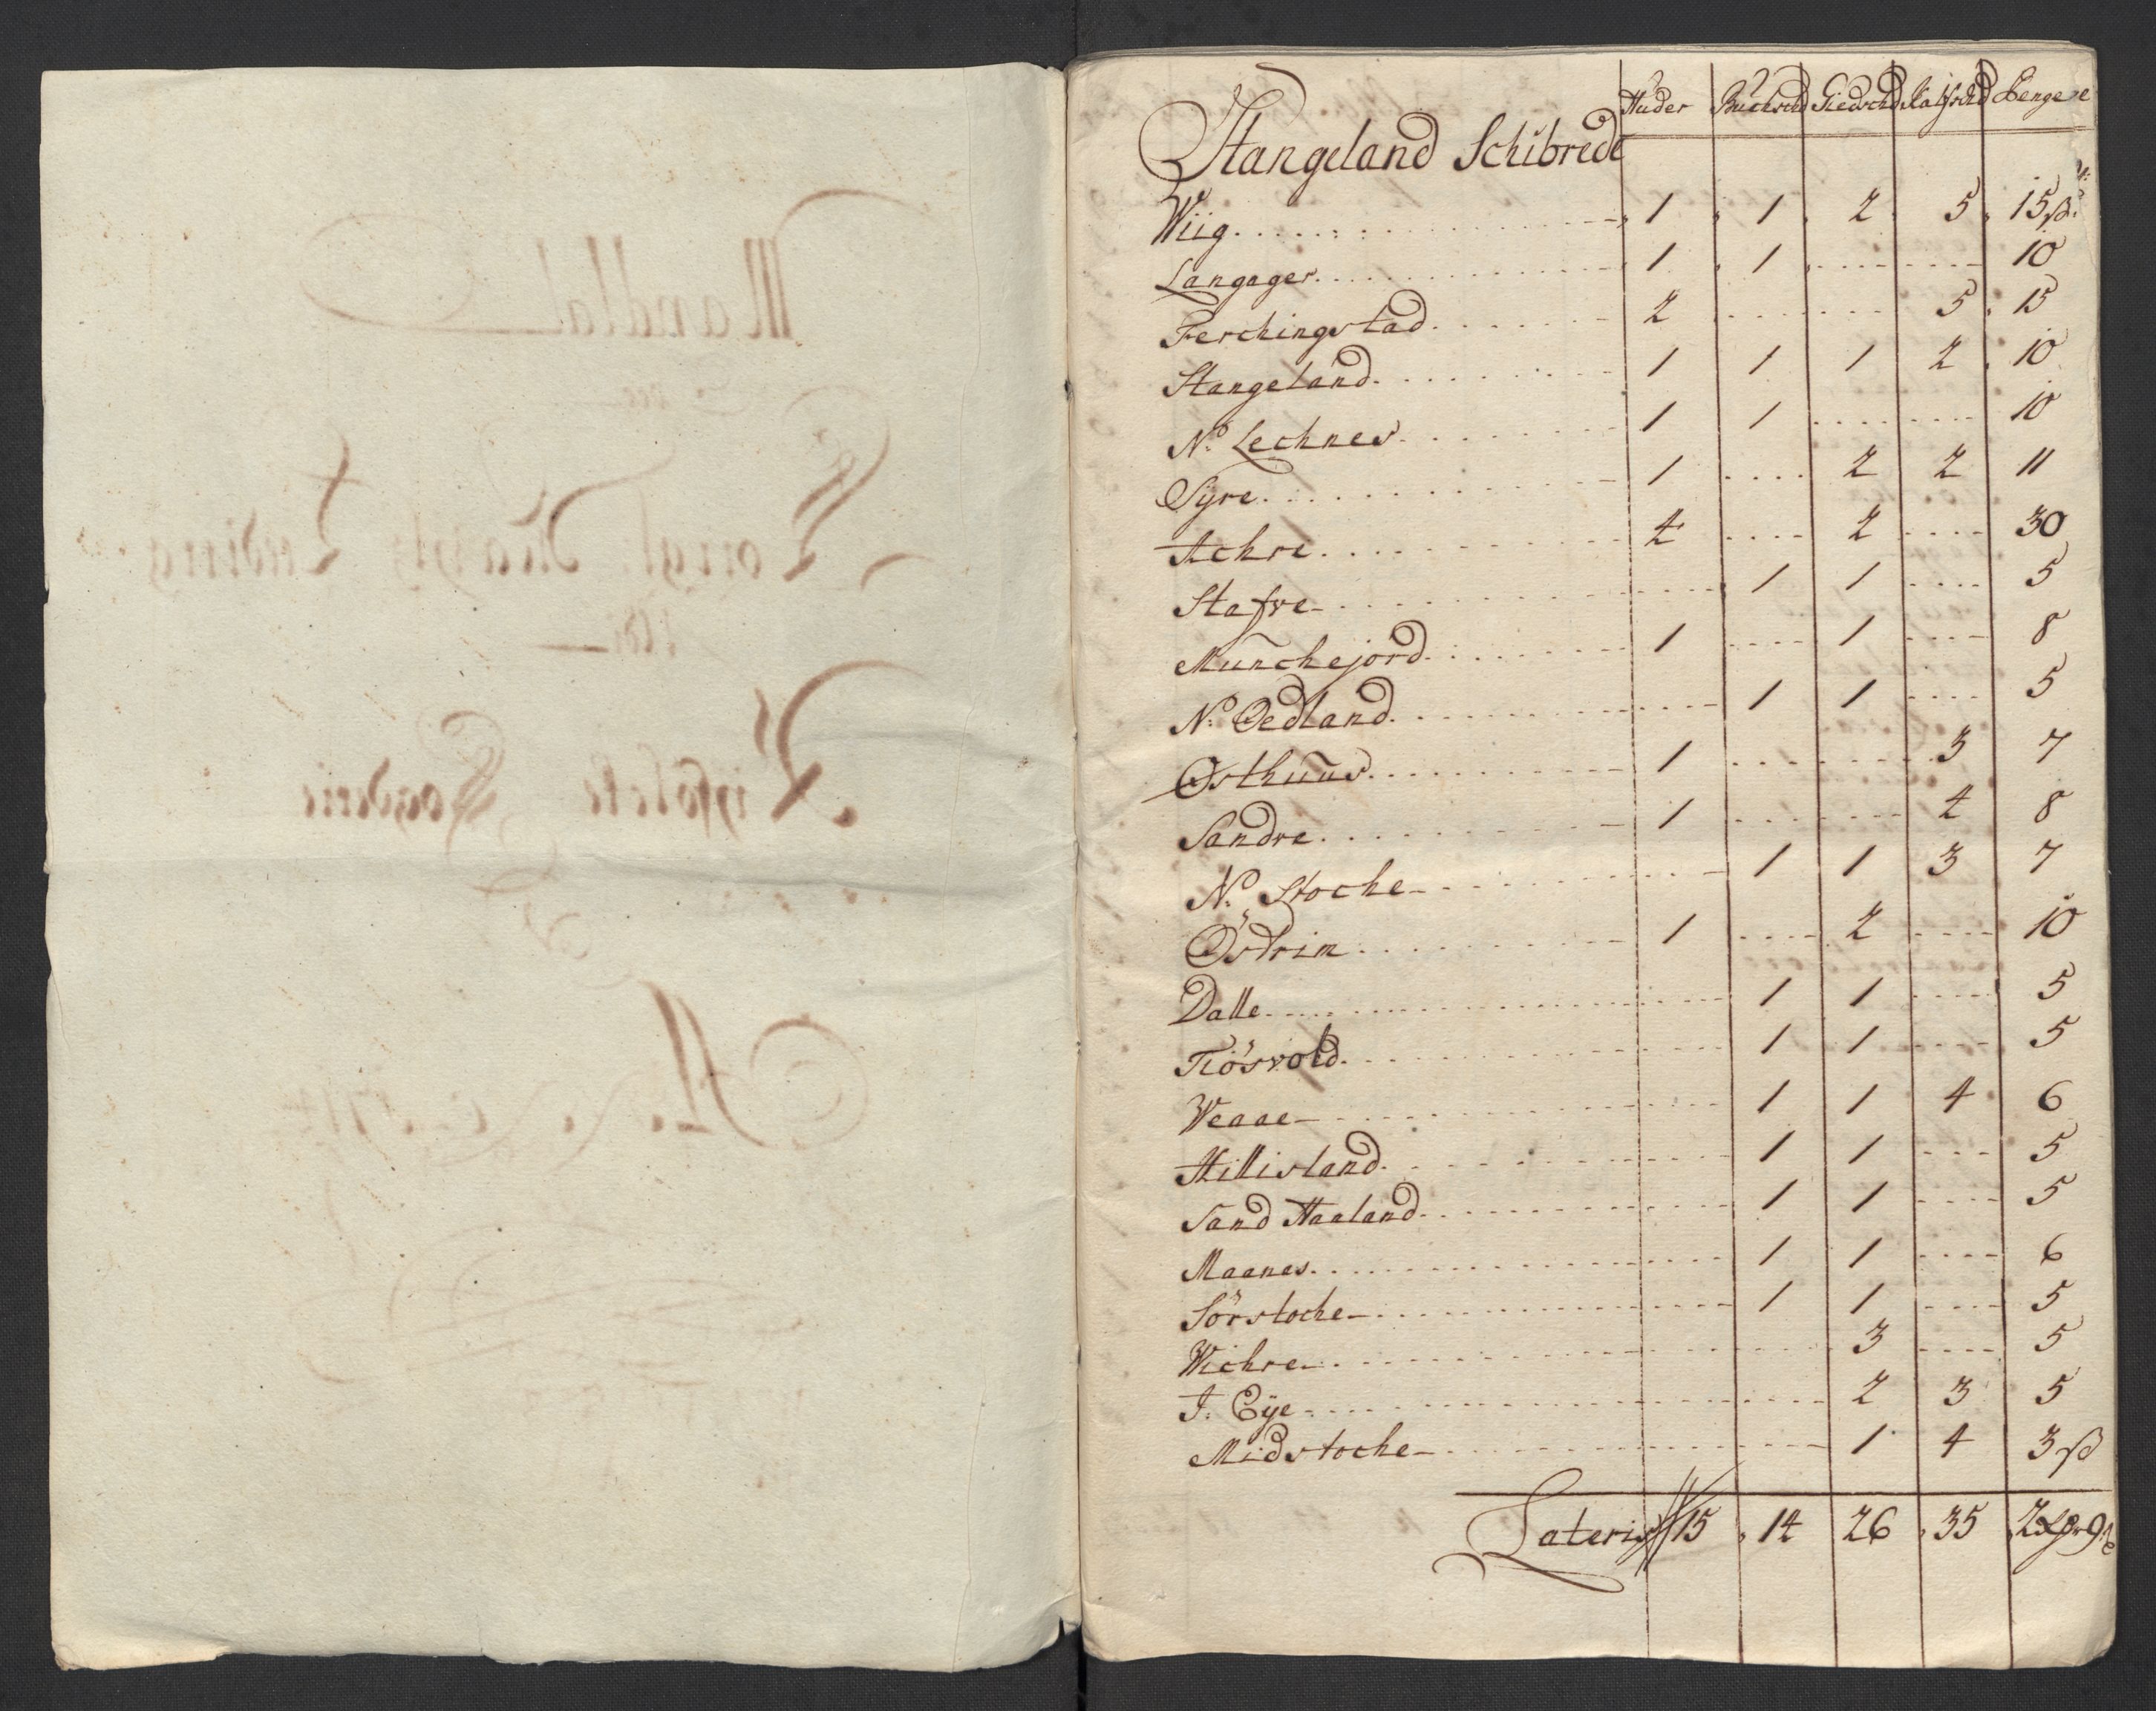 Huder Buckschd Giedschd Kalfschd Penge
Stangeland Schibrede
Wiig 1 1 2 5 15 ß
Langager 1 1 10
Ferchingstad 2 5 15
Stangeland 1 1 1 2 10
N. Lechnes 1 1 10
Syre 1 2 2 11
Achre 4 2 30
Stafre 1 1 5
Munchejord 1 1 8
N. Oedland 1 1 5
Østhuus 1 3 7
Sandre 1 4 8
N. Stoche 1 1 3 7
Østrim 1 2 10
Dalle 1 1 5
Tiösvold 1 1 5
Weaae 1 1 4 6
Hillisland 1 1 5
Sand Haaland 1 1 5
Maanes 1 1 6
Sörstoche 1 1 5
Wichre 3 5
J. Eÿe 2 3 5
Midstoche 1 4 3 ß
Lateris 15 14 26 35